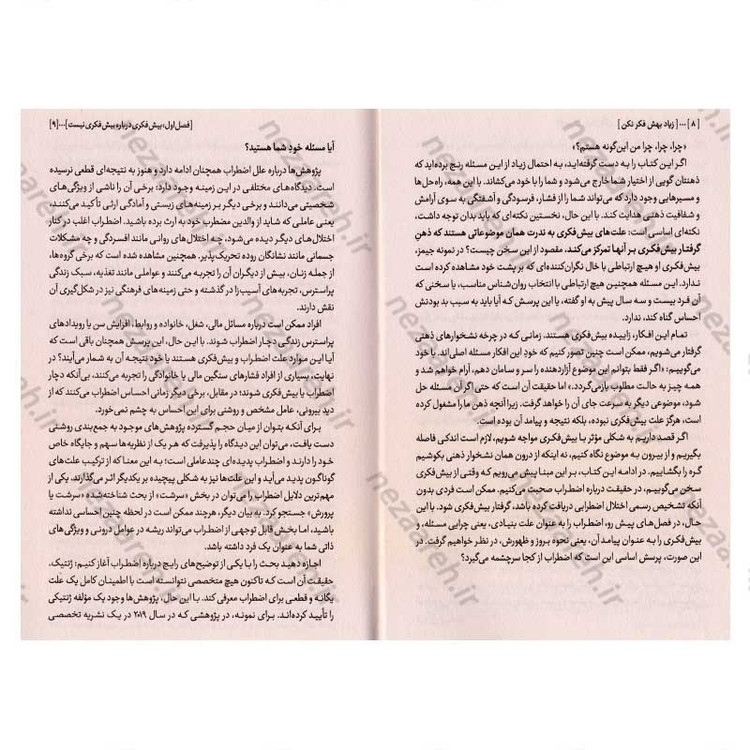 [ ۸ ] ... [ زیاد بهش فکر نکن ]
«چرا، چرا، چرا من این‌گونه هستم؟»
اگر این کتاب را به دست گرفته‌اید، به احتمال زیاد از این مسئله رنج برده‌اید که
ذهنتان گویی از اختیار شما خارج می‌شود و شما را با خود می‌کشاند. با این همه، راه‌حل‌ها
و مسیرهایی وجود دارد که می‌تواند شما را از فشار، فرسودگی و آشفتگی به سوی آرامش
و شفافیت ذهنی هدایت کند. با این حال، نخستین نکته‌ای که باید بدان توجه داشت،
نکته‌ای اساسی است: علت‌های بیش‌فکری به ندرت همان موضوعاتی هستند که ذهنِ
گرفتار بیش‌فکری بر آنها تمرکز می‌کند، مقصود از این سخن چیست؟ در نمونه جیمز،
بیش‌فکری او هیچ ارتباطی با خال نگران‌کننده‌ای که بر پشت خود مشاهده کرده است
ندارد. این مسئله همچنین هیچ ارتباطی با انتخاب روان‌شناس مناسب، یا سخنی که
آن فرد بیست و سه سال پیش به او گفته، یا این پرسش که آیا باید به سبب بد بودنش
احساس گناه کند، ندارد.
تمام این افکار، زاییده بیش‌فکری هستند. زمانی که در چرخه نشخوارهای ذهنی
گرفتار می‌شویم، ممکن است چنین تصور کنیم که خودِ این افکار مسئله اصلی‌اند. با خود
می‌گوییم: «اگر فقط بتوانم این موضوع آزاردهنده را سر و سامان دهم، آرام خواهم شد و
همه چیز به حالت مطلوب بازمی‌گردد.» اما حقیقت آن است که حتی اگر آن مسئله حل
شود، موضوعی دیگر به سرعت جای آن را خواهد گرفت. زیرا آنچه ذهن ما را مشغول کرده
است، هرگز علت بیش‌فکری نبوده، بلکه نتیجه و پیامد آن بوده است.
اگر قصد داریم به شکلی مؤثر با بیش‌فکری مواجه شویم، لازم است اندکی فاصله
بگیریم و از بیرون به موضوع نگاه کنیم، نه اینکه از درون همان نشخوار ذهنی بکوشیم
گره را بگشاییم. در ادامه این کتاب، بر این مبنا پیش می‌رویم که وقتی از بیش‌فکری
سخن می‌گوییم، در حقیقت درباره اضطراب صحبت می‌کنیم. ممکن است فردی بدون
آنکه تشخیص رسمی اختلال اضطرابی دریافت کرده باشد، گرفتار بیش‌فکری شود. با این
حال، در فصل‌های پیش رو، اضطراب را به عنوان علت بنیادی، یعنی چرایی مسئله، و
بیش‌فکری را به عنوان پیامد آن، یعنی نحوه بروز و ظهورش، در نظر خواهیم گرفت. در
این صورت، پرسش اساسی این است که اضطراب از کجا سرچشمه می‌گیرد؟
[فصل اول: بیش‌فکری درباره بیش‌فکری نیست]...[۹]
آیا مسئله خودِ شما هستید؟
پژوهش‌ها درباره علل اضطراب همچنان ادامه دارد و هنوز به نتیجه‌ای قطعی نرسیده
است. دیدگاه‌های مختلفی در این زمینه وجود دارد: برخی آن را ناشی از ویژگی‌های
شخصیتی می‌دانند و برخی دیگر بر زمینه‌های زیستی و آمادگی ارثی تأکید می‌کنند،
یعنی عاملی که شاید از والدین مضطرب خود به ارث برده باشید. اضطراب اغلب در کنار
اختلال‌های دیگر دیده می‌شود، چه اختلال‌های روانی مانند افسردگی و چه مشکلات
جسمانی مانند نشانگان روده تحریک‌پذیر. همچنین مشاهده شده است که برخی گروه‌ها،
از جمله زنان، بیش از دیگران آن را تجربه می‌کنند و عواملی مانند تغذیه، سبک زندگی
پراسترس، تجربه‌های آسیب‌زا در گذشته و حتی زمینه‌های فرهنگی نیز در شکل‌گیری آن
نقش دارند.
افراد ممکن است درباره مسائل مالی، شغل، خانواده و روابط، افزایش سن یا رویدادهای
پراسترس زندگی دچار اضطراب شوند. با این حال، این پرسش همچنان باقی است که
آیا این موارد علت اضطراب و بیش‌فکری هستند یا خود نتیجه آن به شمار می‌آیند؟ در
نهایت، بسیاری از افراد فشارهای سنگین مالی یا خانوادگی را تجربه می‌کنند، بی‌آنکه دچار
اضطراب یا بیش‌فکری شوند؛ در مقابل، برخی دیگر زمانی احساس اضطراب می‌کنند که از
دید بیرونی، عامل مشخص و روشنی برای این احساس به چشم نمی‌خورد.
برای آنکه بتوان از میان حجم گسترده پژوهش‌های موجود به جمع‌بندی روشنی
دست یافت، می‌توان این دیدگاه را پذیرفت که هر یک از نظریه‌ها سهم و جایگاه خاص
خود را دارند و اضطراب پدیده‌ای چندعاملی است؛ به این معنا که از ترکیب علت‌های
گوناگون پدید می‌آید و این علت‌ها نیز به شکلی پیچیده بر یکدیگر اثر می‌گذارند. یکی از
مهم‌ترین دلایل اضطراب را می‌توان در بخش «سرشت» از بحث شناخته‌شده «سرشت یا
پرورش» جستجو کرد. به بیان دیگر، هرچند ممکن است در لحظه چنین احساسی نداشته
باشید، اما بخش قابل توجهی از اضطراب می‌تواند ریشه در عوامل درونی و ویژگی‌های
ذاتی شما به عنوان یک فرد داشته باشد.
اجازه دهید بحث را با یکی از توضیح‌های رایج درباره اضطراب آغاز کنیم: ژنتیک.
حقیقت آن است که تاکنون هیچ متخصصی نتوانسته است با اطمینان کامل یک علت
یگانه و قطعی برای اضطراب معرفی کند. با این حال، پژوهش‌ها وجود یک مؤلفه ژنتیکی
را تأیید کرده‌اند. برای نمونه، در پژوهشی که در سال ۲۰۱۹ در یک نشریه تخصصی
nezaareh.ir